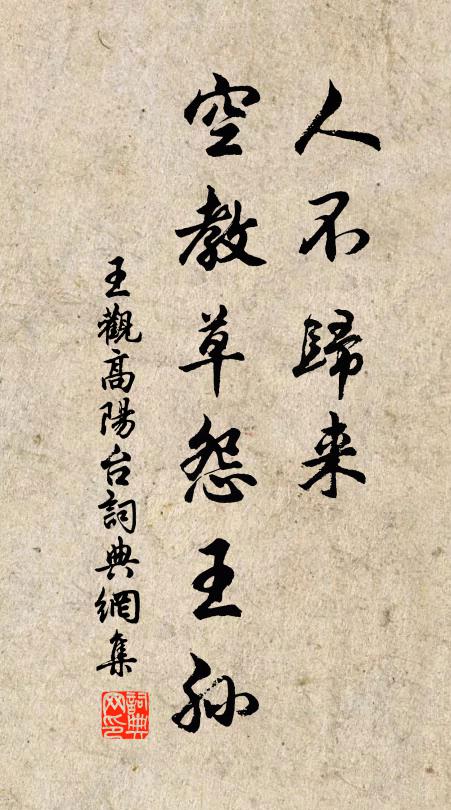 人不歸来
空教草怨王孙
王觀高陽台詞典網集
詞典网印